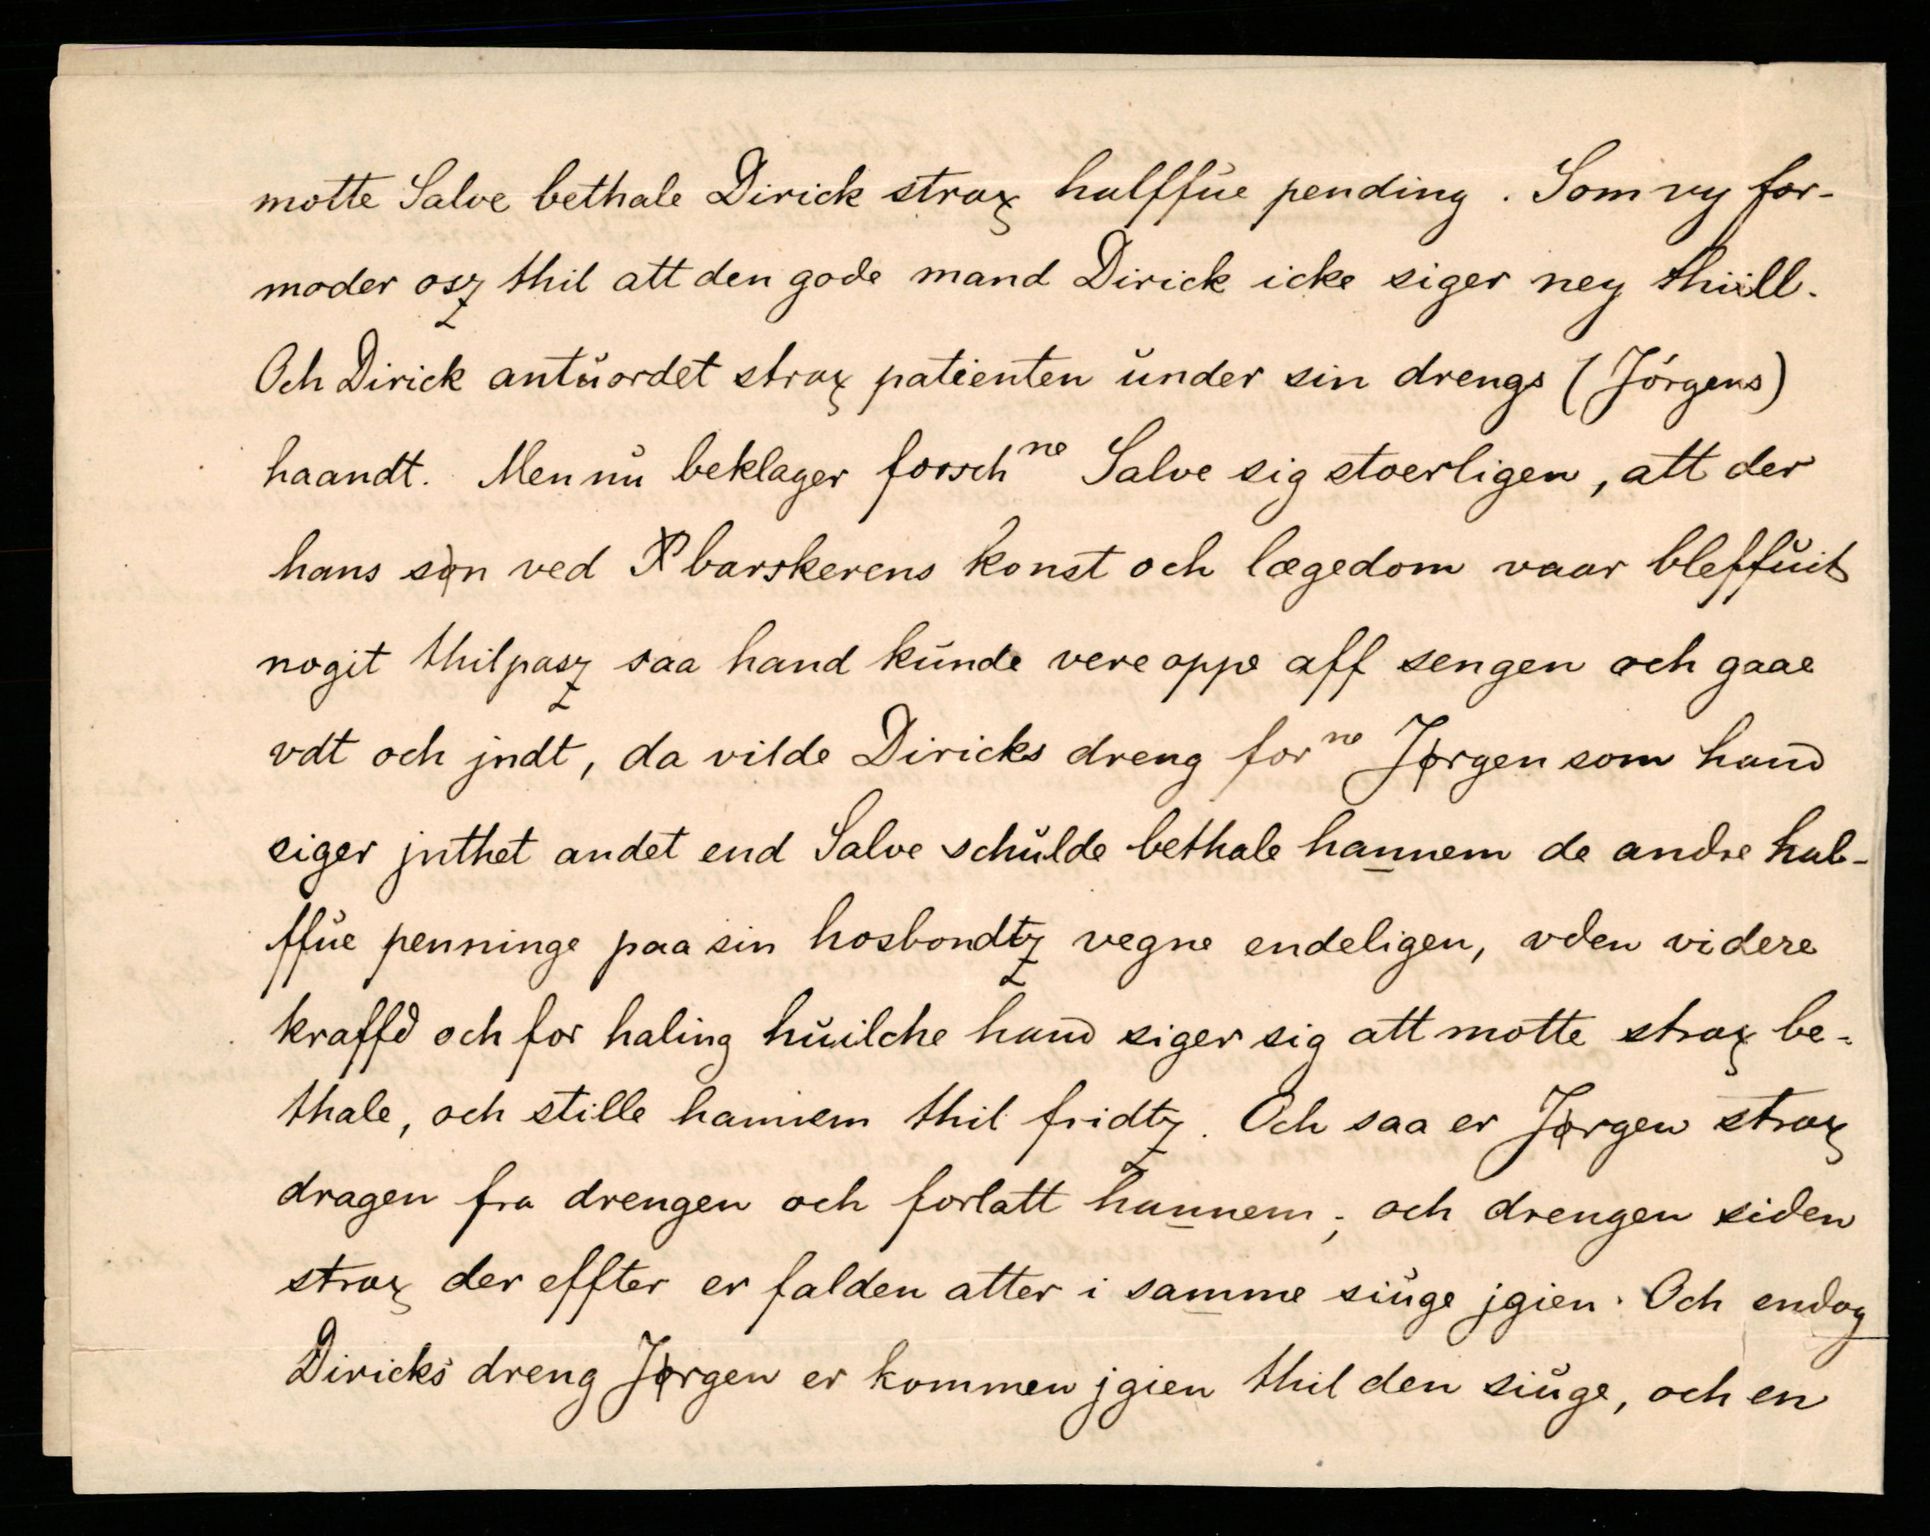 motte Salve bethale Dirick strax halffŭe pending. Som vy for-
moder osz thil att den gode mand Dirick icke siger ney thiill.
Och Dirick antŭordet strax patienten ŭnder sin drengs (Jörgens)
haandt. Men nŭ beklager forschne Salve sig stoerligen, att der
hans søn ved barskerens konst och lægedom vaar bleffŭit
nogit thilpasz saa hand kŭnde vere oppe aff sengen och gaae
vdt och jndt, da vilde Diricks dreng forne Jørgen som hand
siger jnthet andet end Salve schŭlde bethale hannem de andre hal-
ffŭe penninge paa sin hosbondtz vegne endeligen, vden videre
kraffd och for haling hŭilche hand siger sig att motte strax be-
thale, och stille hannem thil fridtz. Och saa er Jørgen strax
dragen fra drengen och forlatt hannem; och drengen siden
strax der effter er falden atter i samme siŭge jgien. Och endog
Diricks dreng Jørgen er kommen jgien thil den siŭge, och en